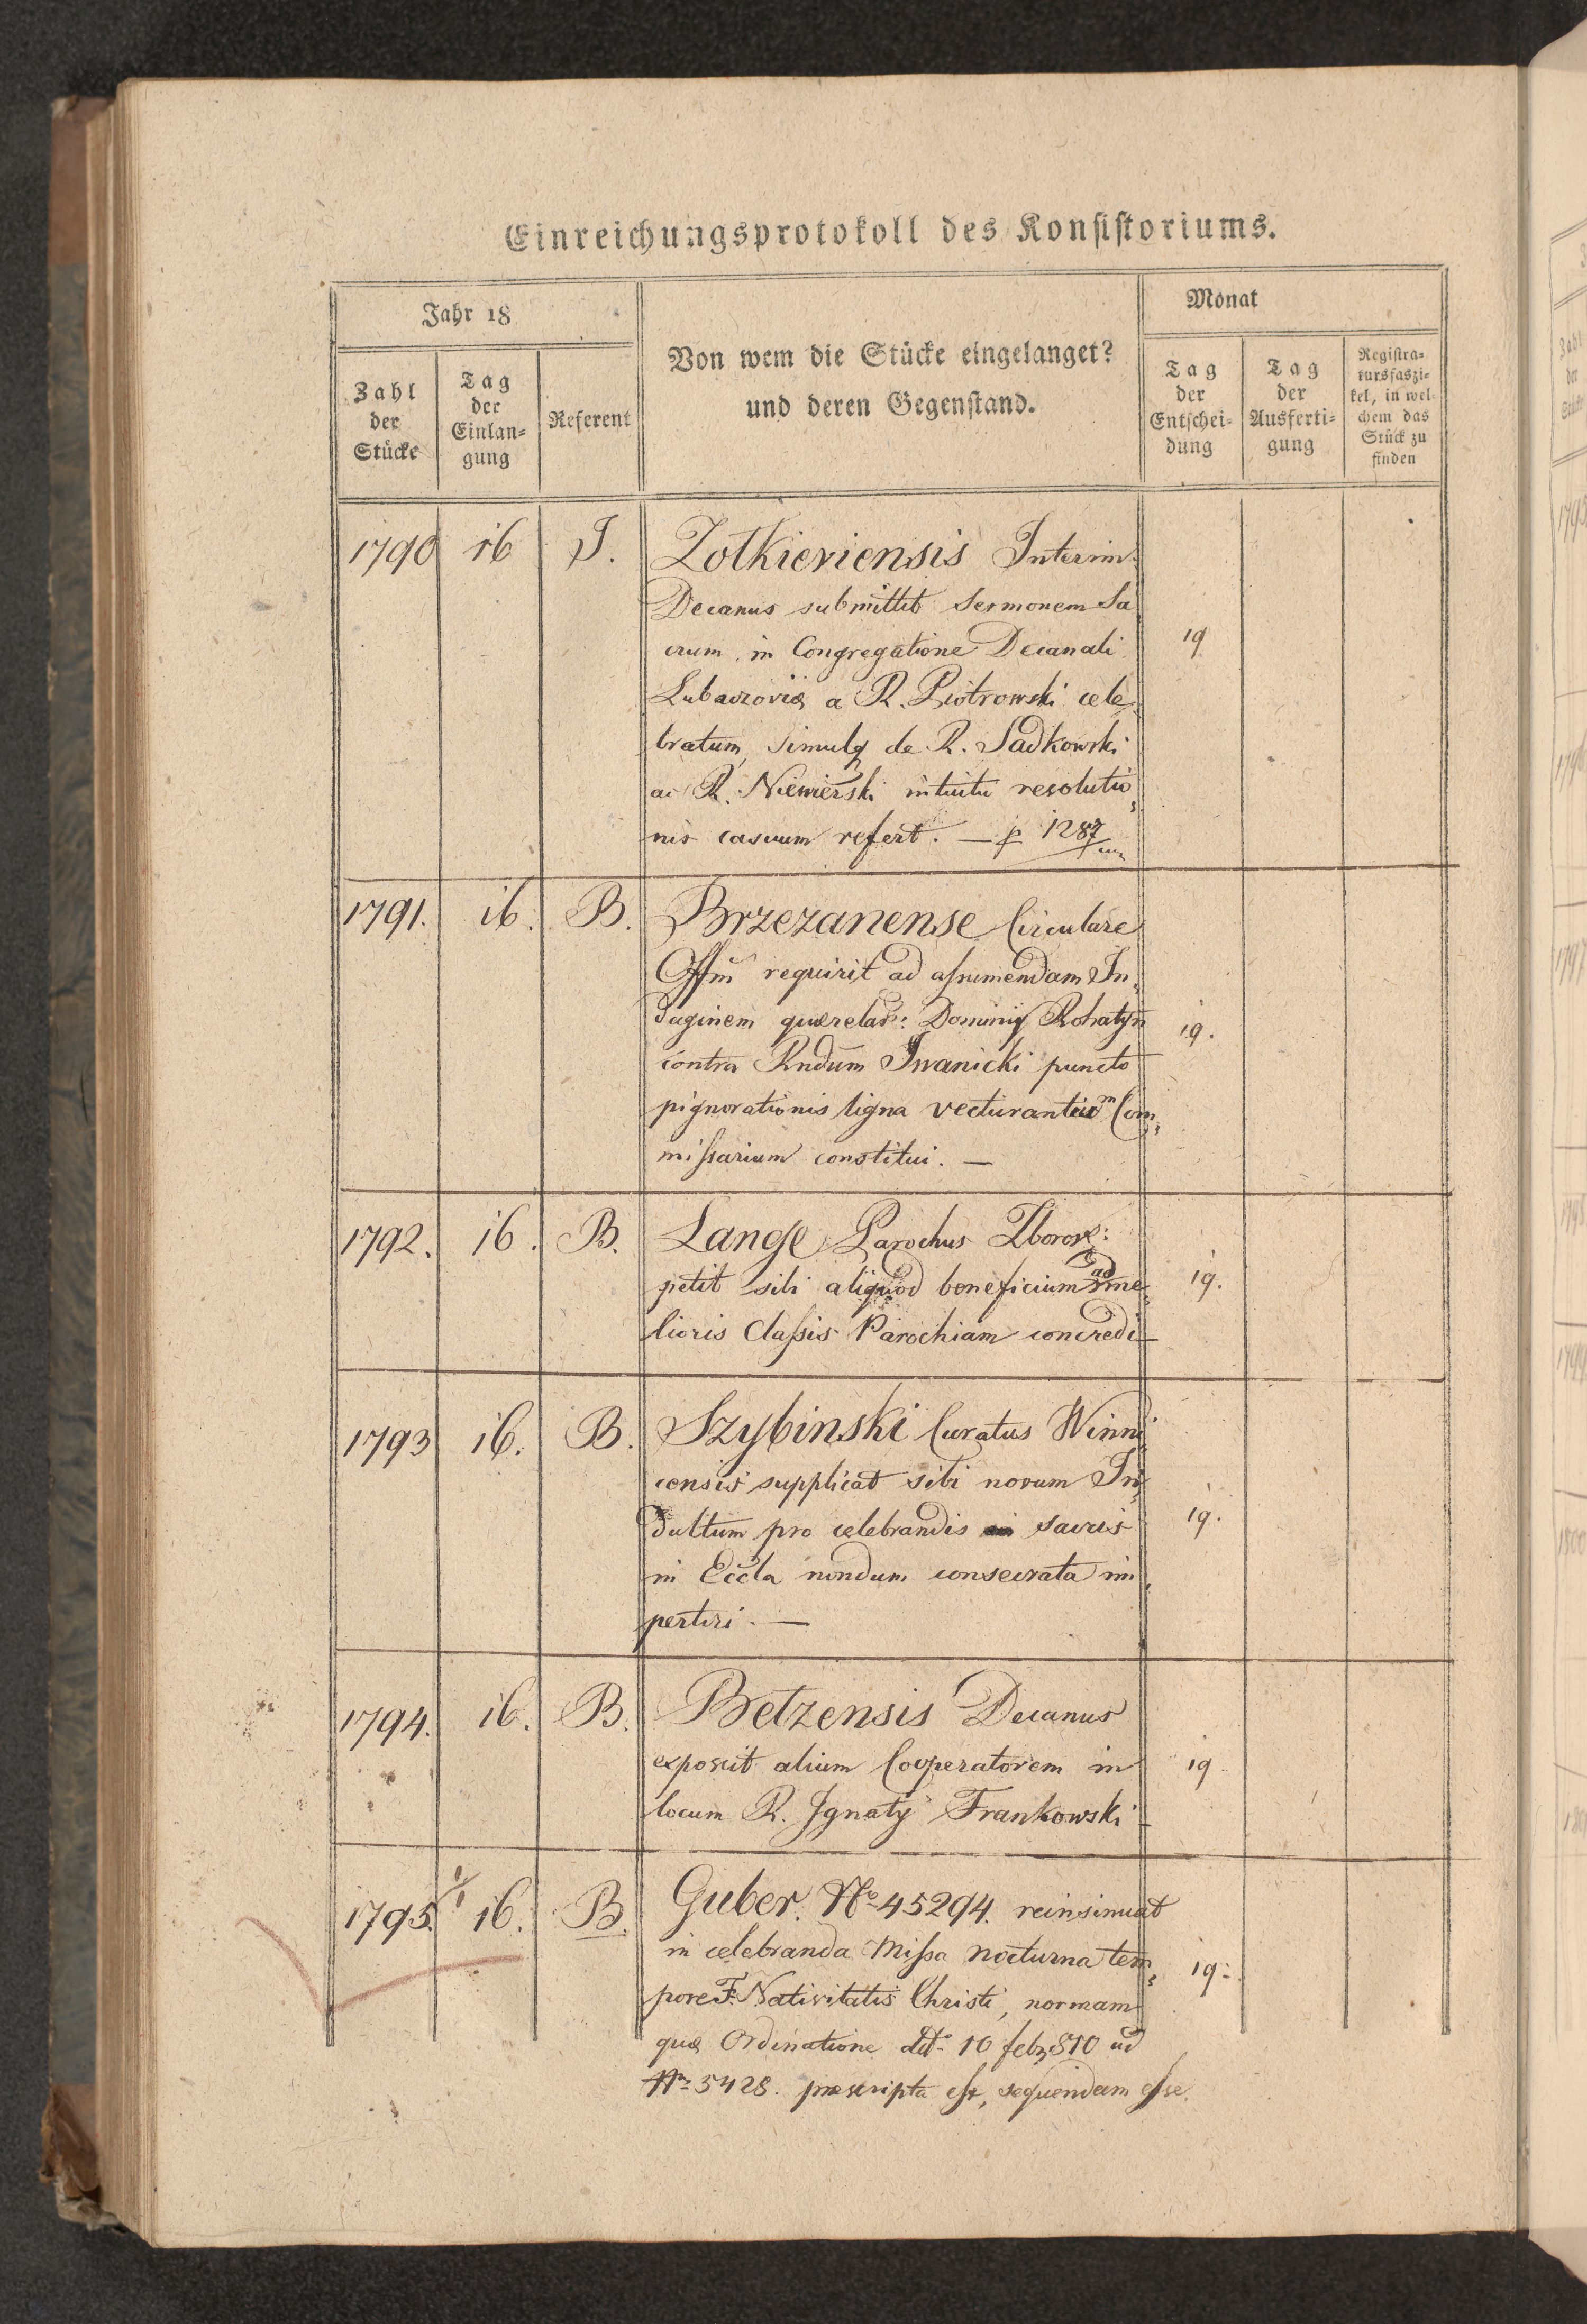 Einreichungsprotokoll des Konsistoriums.
Jahr 18
Zahl der Stücke
Tag der Einlan=gung
Referent
Von wem die Stücke eingelanget?
und deren Gegenstand.
Monat
Tag der Entschei=dung
Tag der Ausferti=gung
Registra=tursfaszi=kel, in wel chem das Stück zu finden
1790 16 J. Zotkieviensis Interim:
Decanus submittit Sermonem Sa
crum in Congregatione Decanali 19
Lubaczoviæ a R. Piotrowski cele
bratum, simulq de R. Sadkowski
ac R. Niemierski intuitu resolutio
nis casuum refert. — p 1287
1791. 16. B. Brzezanense Circulare
Offm requirit ad assumendam In
daginem quærelar: Dominij Rohatyn 19.
contra Rndum Iwanicki puncto
pignorationis ligna vecturantium Com
missarium constitui. —
1792. 16. B. Lange Parochus Zborov:
petit sibi aliquod beneficium ad me 19.
lioris Classis Parochiam concredi —
1793 16. B. Szybinski Curatus Winni
censis supplicat sibi novum In
dultum pro celebrandis sacris 19.
in Eccla nondum consecrata im
pertiri. —
1794. 16. B. Betzensis Decanus
exposcit alium Cooperatorem in 19
locum R. Ignatij Frankowski —
1795. 16. B. Guber. No 45294. reinsinuat
in celebranda Missa nocturna tem 19.
pore F. Nativitatis Christi, normam
quæ Ordinatione ddt 10 feb. 810 ad
No 5428. præscripta est, sequendam esse.